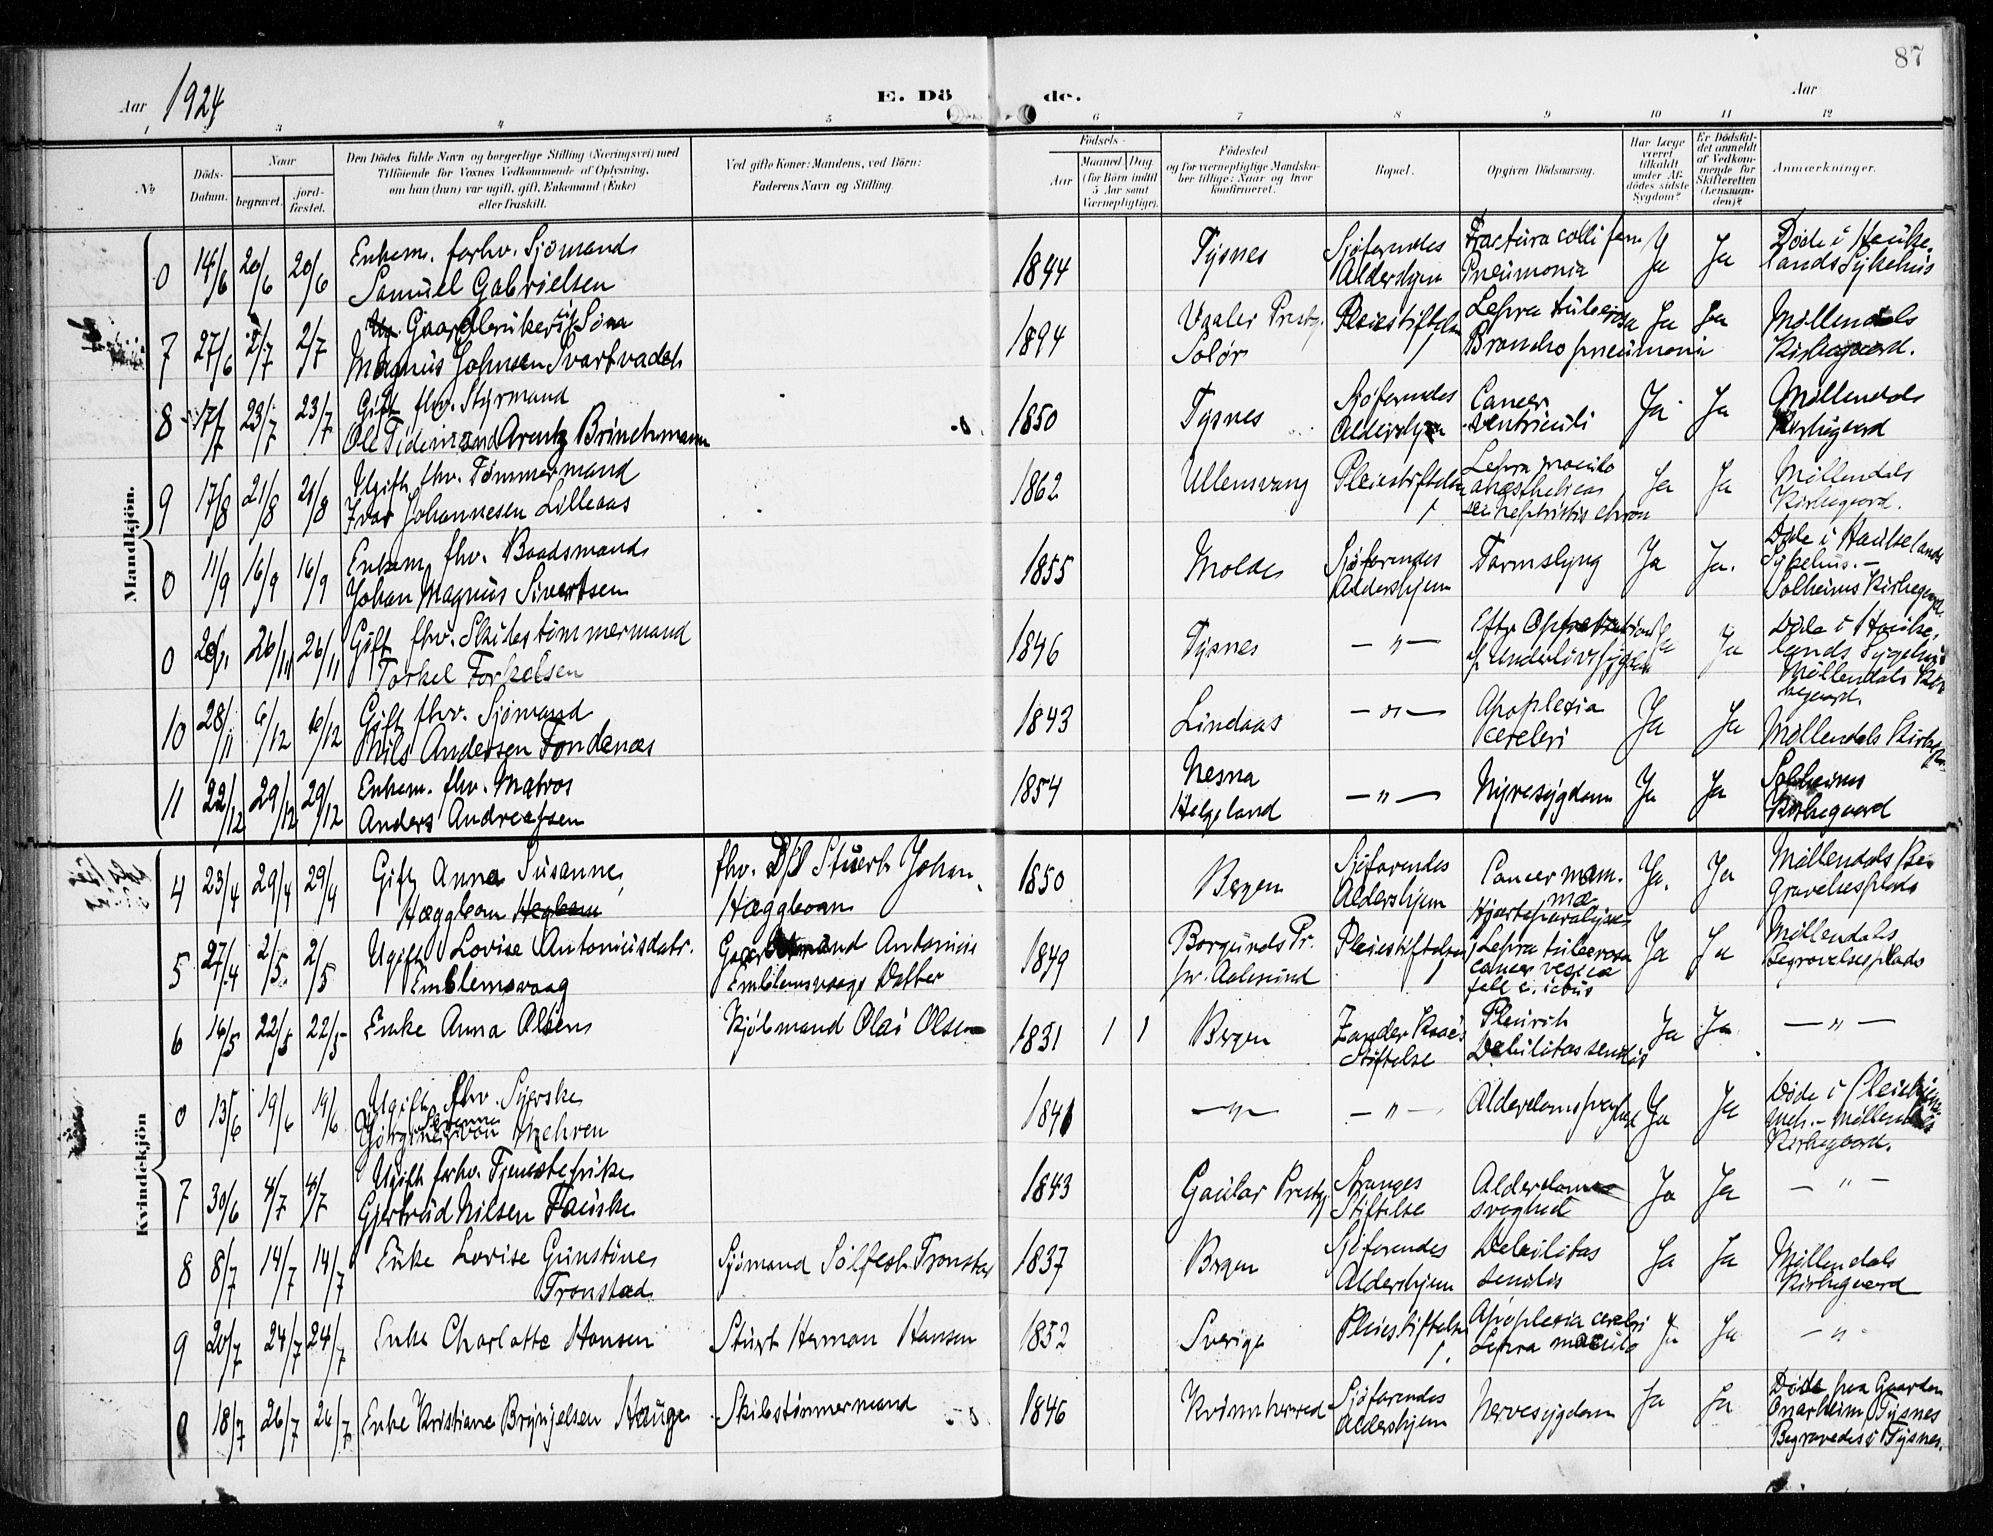 87
Aar 1924
E. Dö de.
Aar
3 4 5 6 7 8 9 10 11 12
No
Döds-Datum.
Naar
begravet.
jord-fæstet.
Den Dödes fulde Navn og borgerlige Stilling (Næringsvei) med
Tilföiende for Voxnes Vedkommende af Oplysning,
om han (hun) var ugift, gift, Enkemand (Enke)
eller fraskilt.
Ved gifte Koner: Mandens, ved Börn:
Faderens Navn og Stilling.
Födsels-
Aar
Maaned
Dag
(for Börn indtil
5 Aar samt
Værnepligtige).
Födested
og for værnepligtige Mandska-
ber tillige: Naar og hvor
konfirmeret.
Bopæl.
Opgiven Dödsaarsag.
Har Læge
været
tilkaldt
under Af-
dödes sidste
Sygdom?
Er Dödsfal-
det anmeldt
af Vedkom-
mende for
Skifteretten
(Lensman-
den)?
Anmærkninger.
Mandkjön.
0 14/6 20/6 20/6 Enkem. forhv. Sjömand Samuel Gabrielsen 1844 Tysnes Sjöfarendes Aldershjem Fractura colli fem Pneumonia Ja Ja Döde i Haukelands Sykehus
7 27/6 2/7 2/7 Gaardbrukers Sön Magnus Johnsen Svartvadet 1894 Vaaler Prestg. Solör Pleiestiftelsen Lepra tuberosa Broncho pneumonia Ja Ja Möllendals Kirkegaard.
8 17/7 23/7 23/7 Gift fhv. Styrmand Ole Tidemand Arentz Brinchmann 1850 Tysnes Sjöfarendes Aldershjem Cancer ventriculi Ja Ja Möllendals Kirkegaard
9 17/8 21/8 21/8 Ugift fhv. Tömmermand Ivar Johannesen Lilleaas 1862 Ullensvang Pleiestiftelsen Lepra maculo anæsthetica nephritis chron Ja Ja Möllendals Kirkegaard.
0 11/9 16/9 16/9 Enkem fhv. Baadsmand Johan Magnus Sivertsen 1855 Molde Sjöfarendes Aldershjem Tarmslyng Ja Ja. Döde i Haukelands Sykehus. – Solheims Kirkegaard
0 20/11 26/11 26/11 Gift fhv. Skibstömmermand Torkel Torkelsen 1846 Tysnes – " – Eftr Operation f. Underlivssygdom Ja Ja Döde i Haukelands Sygehus Möllendals Kirkegaard.
10 28/11 6/12 6/12 Gift fhv. Sjömand Nils Andersen Tondenæs 1843 Lindaas – " – Apoplexia cerebri Ja Ja Möllendals Kirkeg.
11 22/12 29/12 29/12 Enkem. fhv. Matros Anders Andreassen 1854 Nesna Helgeland – " – Nyresygdom Ja Ja Solheims Kirkegaard
Kvindekjön
4 23/4 29/4 29/4 Gift Anna Susanne Hæggbom Hegbom fhv. D/S Stuert Johan Hæggbom 1850 Bergen Sjöfarendes Aldershjem Cancer mammæ Hjerteparalyse Ja. Ja Möllendals Begravelsesplads
5 27/4 2/5 2/5 Ugift Lovise Antoniusdatr. Emblemsvaag Gaardmand Antonius Emblemsvaags Datter 1849 Borgunds Pr. pr. Aalesund Pleiestiftelsen Lepra tuberosa cancer vesica fell c. ictus Ja Ja Möllendals Begravelsesplads
6 16/5 22/5 22/5 Enke Anna Olsen Kjölmand Olai Olsen 1831 1 1 Bergen Zander Kaaes Stiftelse Pleurit Debilitas senilis Ja Ja – " –
0 13/6 19/6 19/6 Ugift fhv. Syerske von Mehren 1841 – " – – " – Alderdomssvaghed Ja Ja Döde i Möllendals Kirkegaard.
7 30/6 4/7 4/7 Ugift forhv. Tjenestepike Gjertrud Nilsen Fauske 1843 Gaular Prestg Stranges Stiftelse Alderdomssvaghed Ja Ja – " –
8 8/7 14/7 14/7 Enke Lovise Gunstöne Tronstad Sjömand Sölfest Tronstad 1837 Bergen Sjöfarendes Aldershjem Debilitas senilis Ja Ja Möllendals Kirkegaard
9 20/7 24/7 24/7 Enke Charlotte Hansen Stuert Herman Hansen 1852 Sverige Pleiestiftelsen Apoplexia cerebri Lepra maculo Ja Ja – " –
0 18/7 26/7 26/7 Enke Kristiane Brynjelsen Hauge Skibstömmermand 1846 Kvinnherred Sjöfarendes Aldershjem Nervesygdom Ja Ja Döde paa Gaarden Onarheim, Tysnes Begravedes i Tysnes.